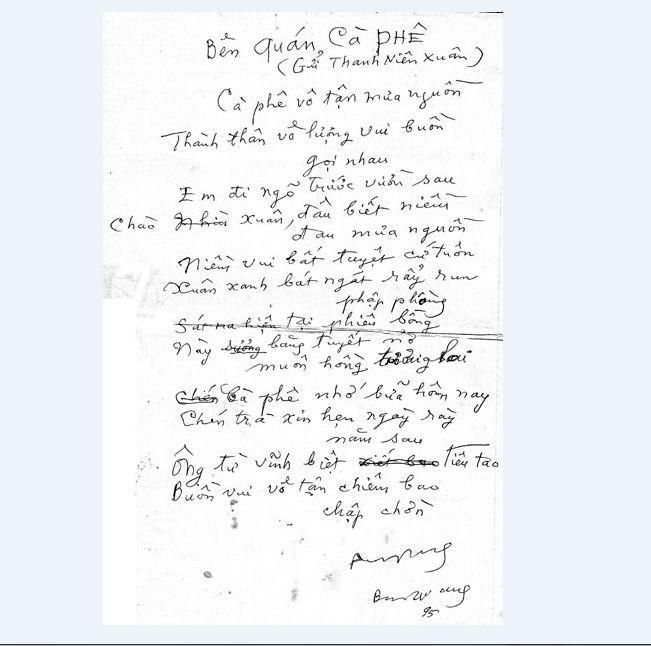 Bên Quán Cà PHÊ
(Gửi Thanh Niên Xuân)
Cà phê vô tận mưa nguồn
Thành thân vô lượng vui buồn
gọi nhau
Em đi ngõ trước vườn sau
Chào xuân, đâu biết niềm
đau mưa nguồn
Niềm vui bất tuyệt cứ tuôn
Xuân xanh bát ngát rẩy run
phập phồng
Sát na hiện tại phiêu bồng
Này băng tuyết nở
muôn hồng
Cà phê nhớ bữa hôm nay
Chén trà xin hẹn ngày rày
năm sau
Ông từ vĩnh biệt Tiêu tao
Buồn vui vô tận chiêm bao
chập chờn
95